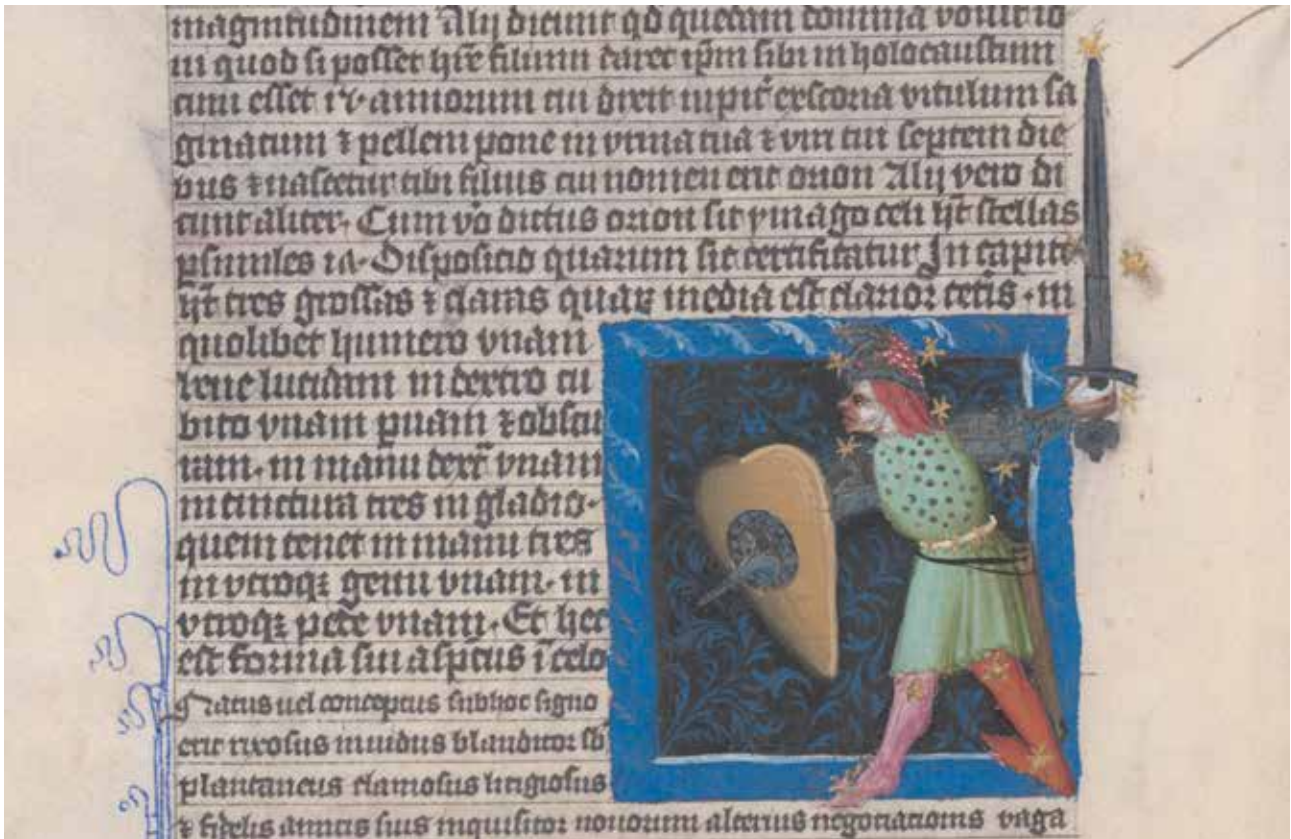 magnitudinem Alij dicunt qd quedam domina vouit io
ui quod si posset hr̄e filium daret ip̄m sibi in holocaustum
cum esset ix · annorum cui dixit iupit̾ excoria vitulum sa
ginatum ⁊ pellem pone in vrina tua ⁊ viri tui septem die
bus ⁊ nascetur tibi filius cui nomen erit orion Alij vero di
cunt aliter · Cum v̊o dictus orion sit ymago celi hꝫ stellas
Disposicio quarum sic certificatur In capite
hꝫ tres grossas ⁊ claras quaꝝ media est clarior cet̾is · in
quolibet humero vnam
bene lucidam in dextro cu
bito vnam p̄uam ⁊ obscu
ram · in manu dext̾ vnam
in cinctura tres in gladio ·
quem tenet in manu tres
in vtroqꝫ genu vnam · in
vtroqꝫ pede vnam · Et hec
est forma sui asp̄tus ī celo
Natus uel conceptus sub hoc signo
erit rixosus inuidus blanditor sb̾
plantaneus clamosus litigiosus
⁊ fidelis amicis suis inquisitor nouorum alterius negociacionis vaga